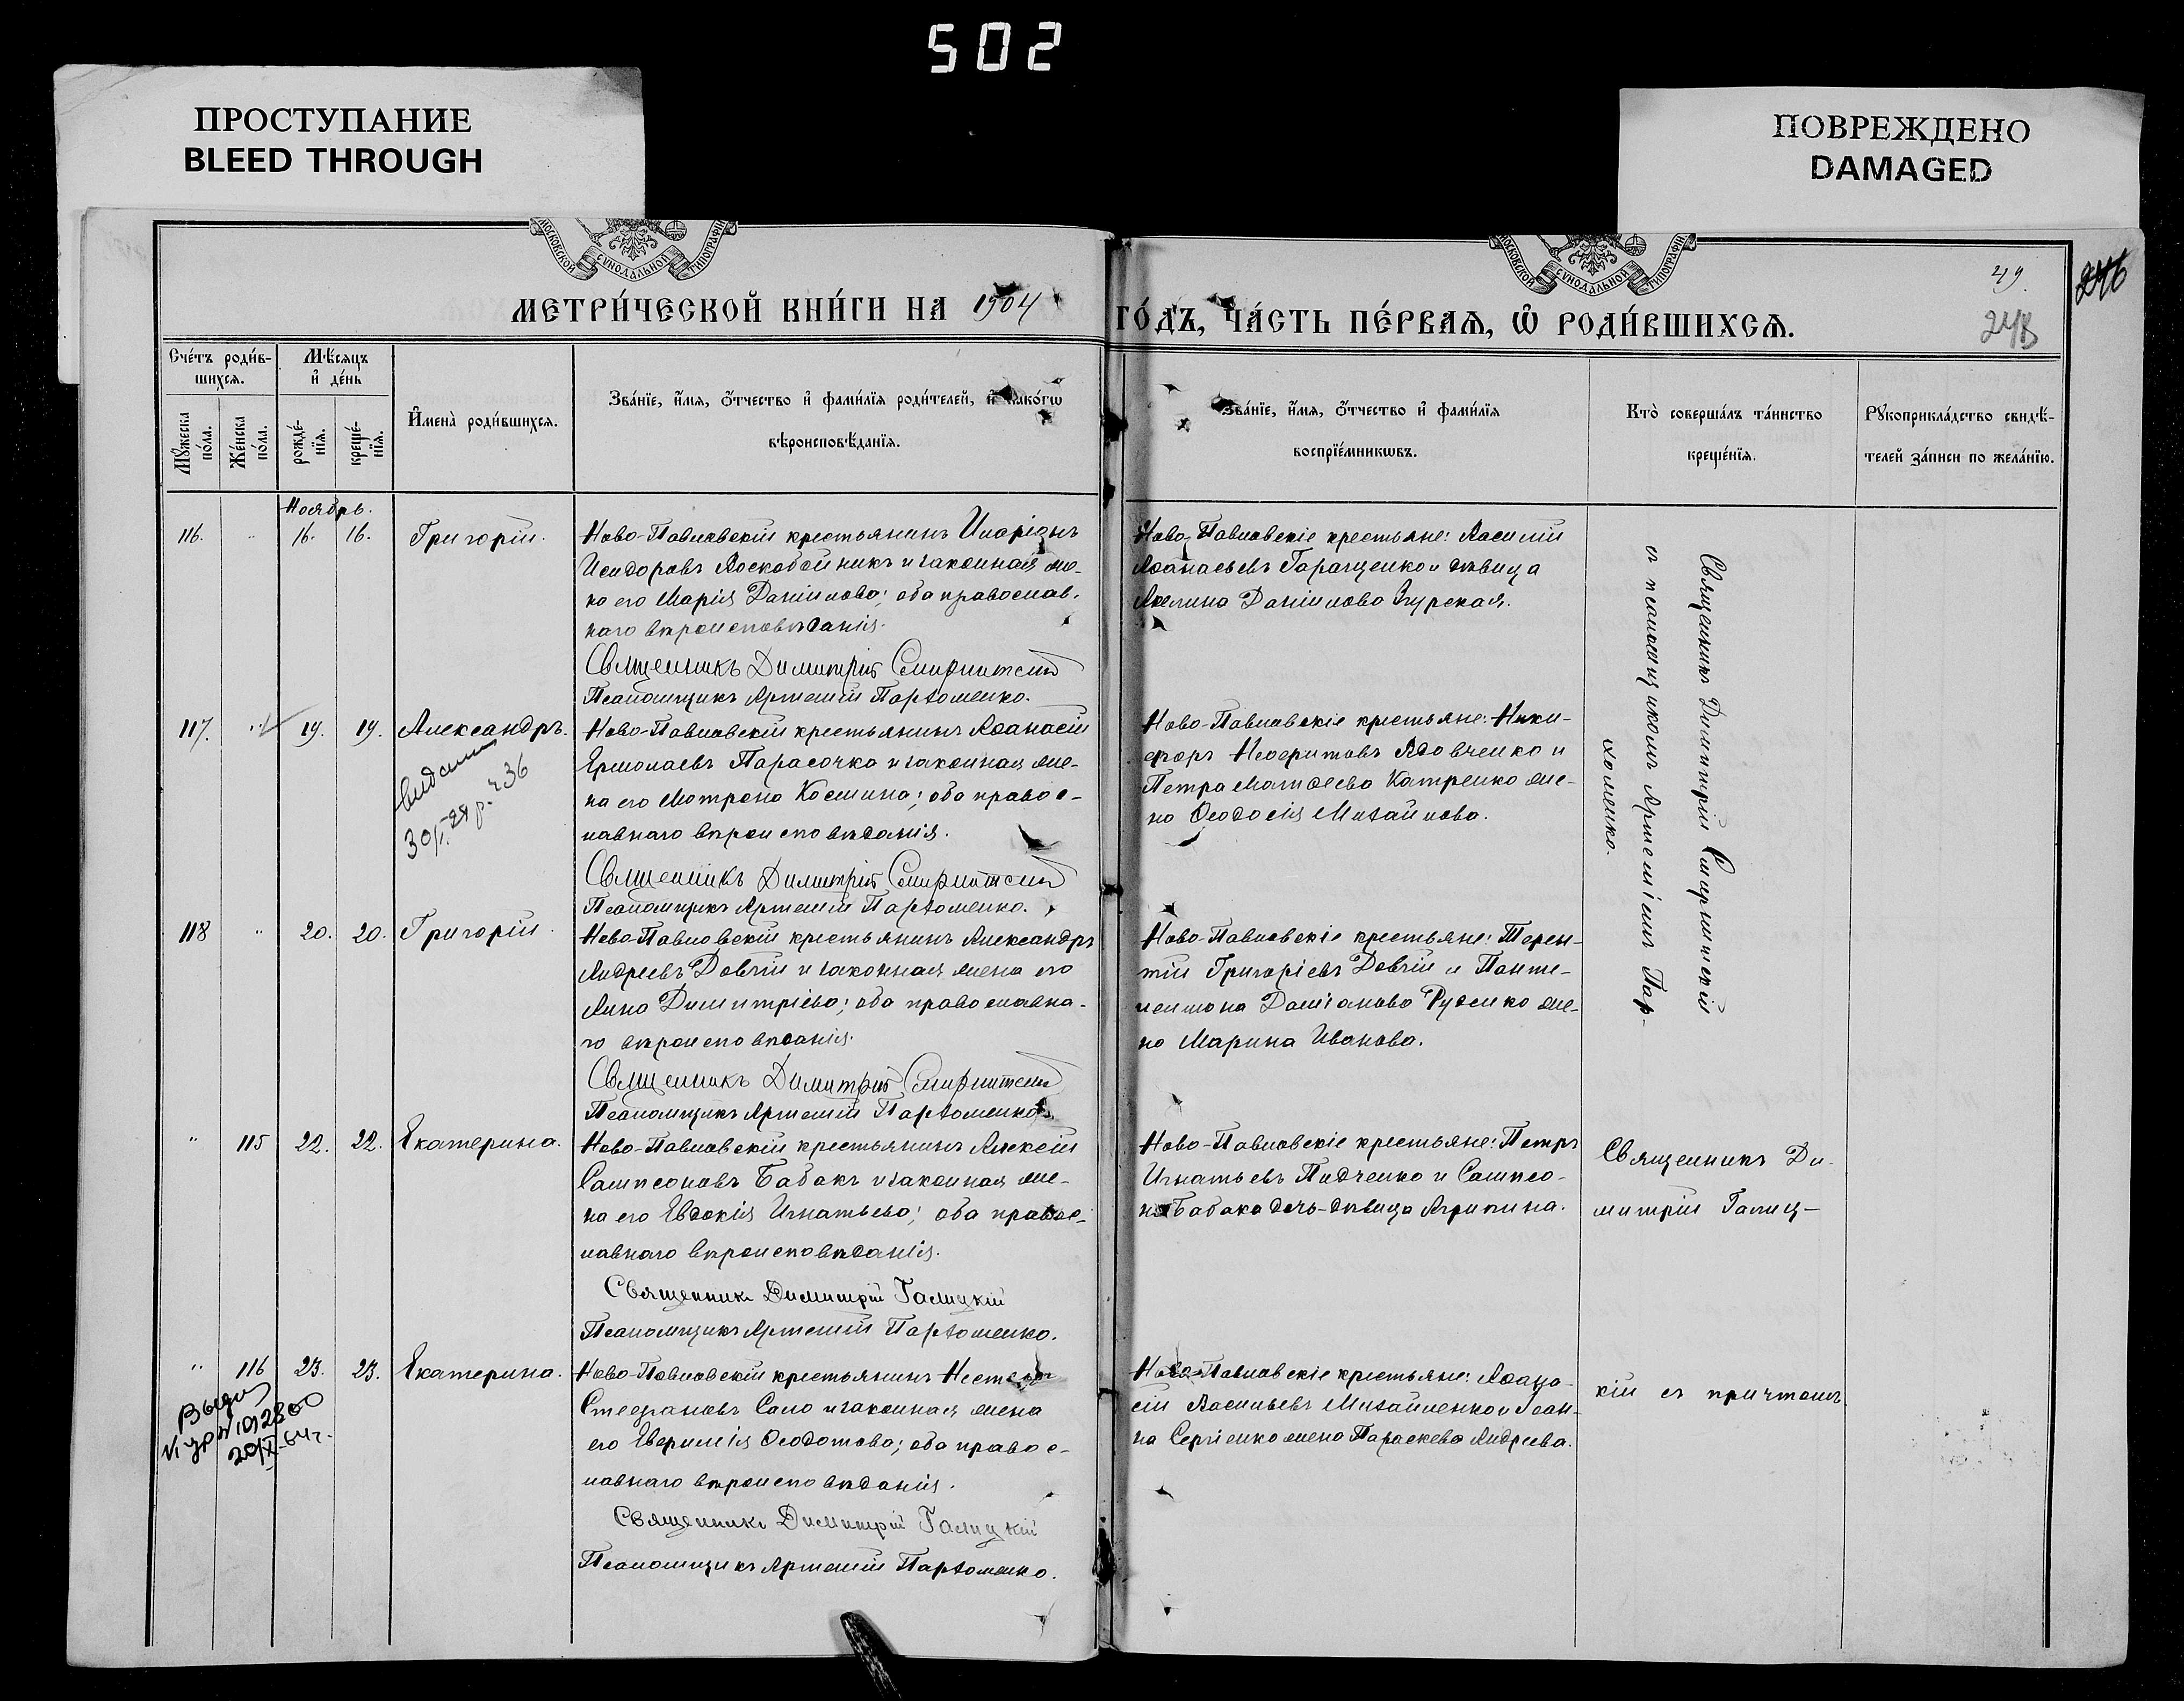 502
ПРОСТУПАНИЕ
BLEED THROUGH
ПОВРЕЖДЕНО
DAMAGED
МОСКОВСКОЙ СѴНОДАЛЬНОЙ ТИПОГРАФІИ
МОСКОВСКОЙ СѴНОДАЛЬНОЙ ТИПОГРАФІИ
49.
246
248
МЕТРИ́ЧЕСКОЙ КНИ́ГИ НА 1904 ГО́ДЪ, ЧА́СТЬ ПЕ́РВАѦ, Ѽ РОДИ́ВШИХСѦ.
Сче́тъ роди́в-
шихсѧ.
Мѣ́сѧцъ
и҆ де́нь
Мꙋ́жеска
по́ла.
Же́нска
по́ла.
рожде́-
нїѧ.
креще́-
нїѧ.
И҆мена̀ роди́вшихсѧ.
Зва́нїе, и҆́мѧ, ѻ҆́тчество и҆ фами́лїѧ роди́телей, и҆ како́гѡ
вѣроисповѣ́данїѧ.
Зва́нїе, и҆́мѧ, ѻ҆́тчество и҆ фами́лїѧ
воспрїе́мникѡвъ.
Кто̀ соверша́лъ та́инство
креще́нїѧ.
Рꙋкоприкла́дство свидѣ́-
телей за́писи по жела́нїю.
Ноябрь.
116. " 16. 16. Григорій.
Ново-Павловскій крестьянинъ Иларіонъ
Исидоровъ Воскобойникъ и законная же-
на его Марія Даніилова; оба православ-
наго вѣроисповѣданія.
Священникъ Димитрій
Псаломщикъ Артемій Пархоменко.
Ново-Павловскіе крестьяне: Василій
Аѳанасьевъ Геращенко и дѣвица
Акелина Даніилова Згурская.
Священникъ Димитрій
съ псаломщикомъ Артеміемъ Пар-
хоменко.
117. " 19. 19. Александръ.
Видано
30/I-29 р. ч 36
Ново-Павловскій крестьянинъ Аѳанасій
Ермолаевъ Парасочка и законная же-
на его Мотрона Косьмина; оба правос-
лавнаго вѣроисповѣданія.
Священникъ Димитрій
Псаломщикъ Артемій Пархоменко.
Ново-Павловскіе крестьяне: Ники-
форъ Неофитовъ Вдовченко и
Петра Матѳеева Катренко же-
на Ѳеодосія Михайлова.
118 " 20. 20. Григорій.
Ново-Павловскій крестьянинъ Александръ
Андреевъ Довгій и законная жена его
Анна Димитріева; оба православна-
го вѣроисповѣданія.
Священникъ Димитрій
Псаломщикъ Артемій Пархоменко.
Ново-Павловскіе крестьяне: Терен-
тій Григоріевъ Довгій и Панте-
леимона Даміанова Руденко же-
на Марина Иванова.
" 115 22. 22. Екатерина.
Ново-Павловскій крестьянинъ Алексій
Сампсоновъ Бабакъ и законная же-
на его Евдокія Игнатьева; оба правос-
лавнаго вѣроисповѣданія.
Священникъ Димитрій Галицкій
Псаломщикъ Артемій Пархоменко.
Ново-Павловскіе крестьяне: Петръ
Игнатьевъ Пидченко и Сампсо-
на Бабака дочь-дѣвица Агрипина.
Священникъ Ди-
митрій Галиц-
" 116 23. 23. Екатерина.
20/XI-64г.
Ново-Павловскій крестьянинъ Несторъ
Стефановъ Сало и законная жена
его Евфимія Ѳеодотова; оба правос-
лавнаго вѣроисповѣданія.
Священникъ Димитрій Галицкій
Псаломщикъ Артемій Пархоменко.
Ново-Павловскіе крестьяне: Аѳана-
сій Васильевъ Михайленко и Іоан-
на Сергіенко жена Параскева Андреева.
кій съ причтомъ